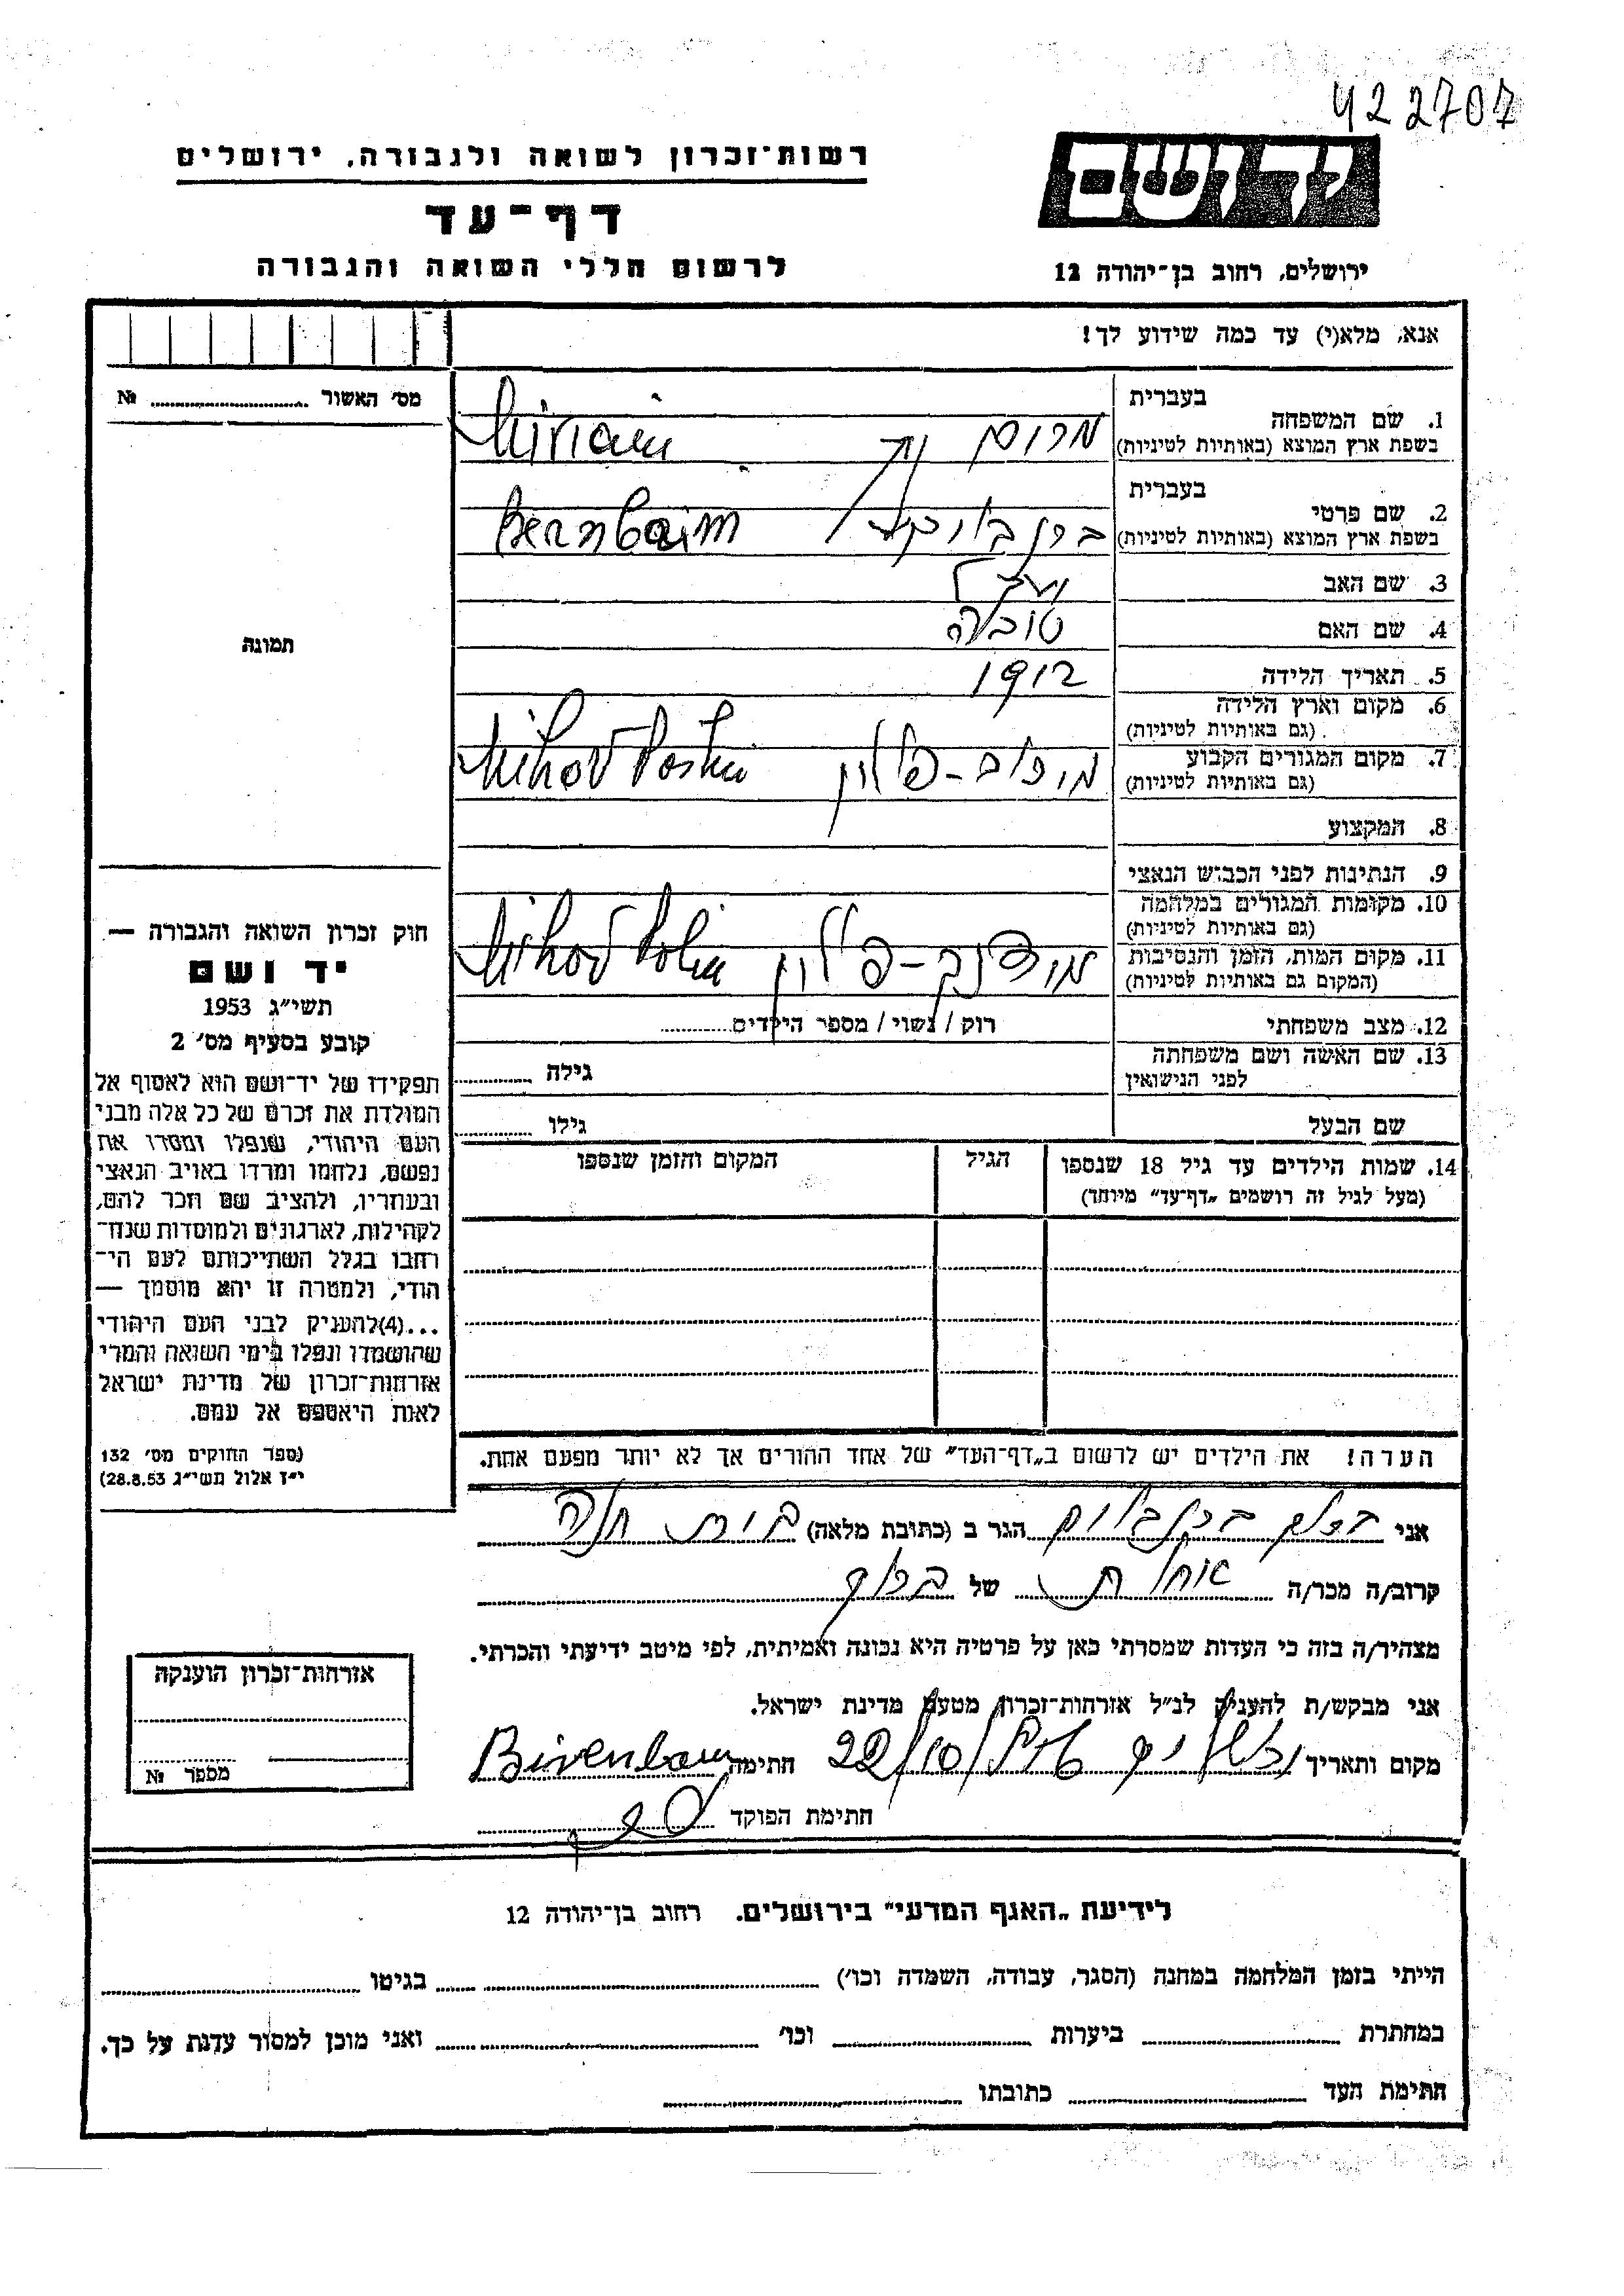 422707
יד ושם
רשות־זכרון לשואה ולגבורה, ירושלים
דף־עד
לרשום חללי השואה והגבורה
ירושלים, רחוב בן־יהודה 12
אנא, מלא(י) עד כמה שידוע לך!
מס' האשור № 
תמונה
חוק זכרון השואה והגבורה —
יד ושם
תשי״ג 1953
קובע בסעיף מס' 2
תפקידו של יד־ושם הוא לאסוף אל
המולדת את זכרם של כל אלה מבני
העם היהודי, שנפלו ומסרו את
נפשם, נלחמו ומרדו באויב הנאצי
ובעוזריו, ולהציב שם וזכר להם,
לקהילות, לארגונים ולמוסדות שנח־
רחבו בגלל השתייכותם לעם הי־
הודי, ולמטרה זו יהא מוסמך —
...(4)להעניק לבני העם היהודי
שהושמדו ונפלו בימי השואה והמרי
אזרחות־זכרון של מדינת ישראל
לאות היאספם אל עמם.
(ספר החוקים מס' 132
י״ז אלול תשי״ג 28.8.53)
בעברית
1. שם המשפחה מרים Miriam
בשפת ארץ המוצא (באותיות לטיניות)
בעברית
2. שם פרטי Bernbaim
בשפת ארץ המוצא (באותיות לטיניות)
3. שם האב
4. שם האם טובה
5. תאריך הלידה 1912
6. מקום וארץ הלידה
(גם באותיות לטיניות)
7. מקום המגורים הקבוע מיכוב-פולין
(גם באותיות לטיניות)
8. המקצוע
9. הנתינות לפני הכבוש הנאצי
10. מקומות המגורים במלחמה
(גם באותיות לטיניות)
11. מקום המות, הזמן והנסיבות מיכוב-פולין
(המקום גם באותיות לטיניות)
12. מצב משפחתי רוק / נשוי / מספר הילדים
13. שם האשה ושם משפחתה גילה
לפני הנישואין
שם הבעל גילו
14. שמות הילדים עד גיל 18 שנספו הגיל המקום והזמן שנספו
(מעל לגיל זה רושמים „דף־עד״ מיוחד)
הערה! את הילדים יש לרשום ב„דף־העד״ של אחד ההורים אך לא יותר מפעם אחת.
אני הגר ב (כתובת מלאה)
קרוב/ה מכר/ה אחות של
מצהיר/ה בזה כי העדות שמסרתי כאן על פרטיה היא נכונה ואמיתית, לפי מיטב ידיעתי והכרתי.
אני מבקש/ת להעניק לנ״ל אזרחות־זכרון מטעם מדינת ישראל.
מקום ותאריך 22/10/ חתימה Birenbaum
חתימת הפוקד
אזרחות־זכרון הוענקה
מספר №
לידיעת „האגף המדעי״ בירושלים. רחוב בן־יהודה 12
הייתי בזמן המלחמה במחנה (הסגר, עבודה, השמדה וכו') בגיטו
במחתרת ביערות וכו' ואני מוכן למסור עדות על כך.
חתימת העד כתובתו